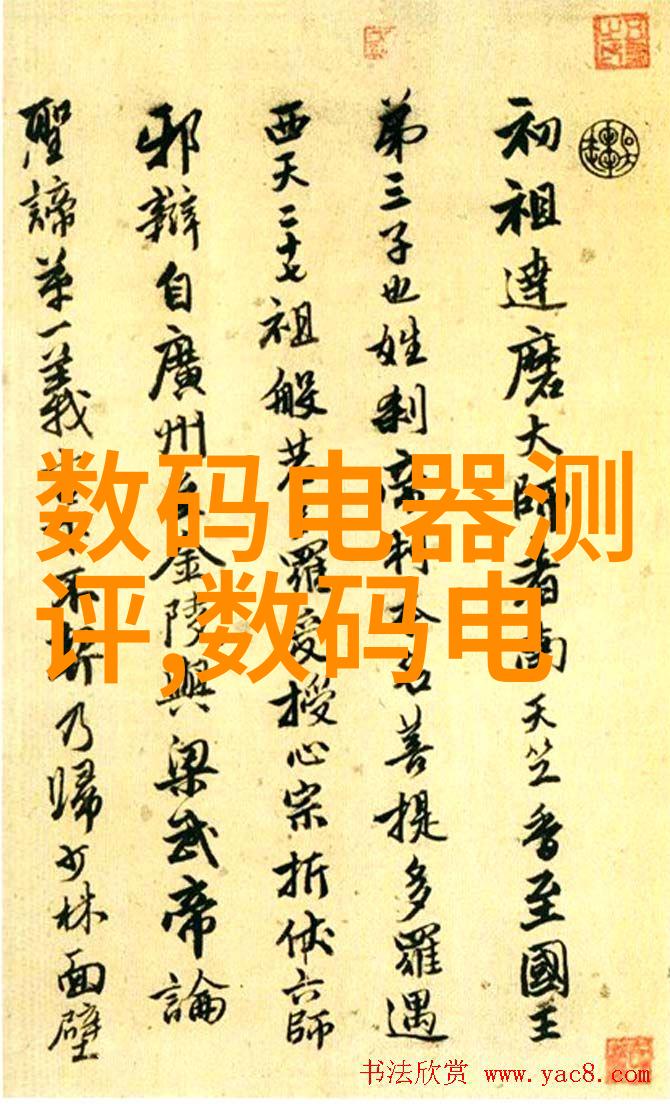 初祖達磨大師者南天竺香至國王
弟三子也姓刹帝利本名菩提多羅遇
西天二十七祖般若多羅受授心宗折伏六師
邪辯自廣州至金陵與梁武帝論
聖諦第一義不折乃歸少林面壁
数码电器测
评,数码电
书法欣赏 www.yac8.com